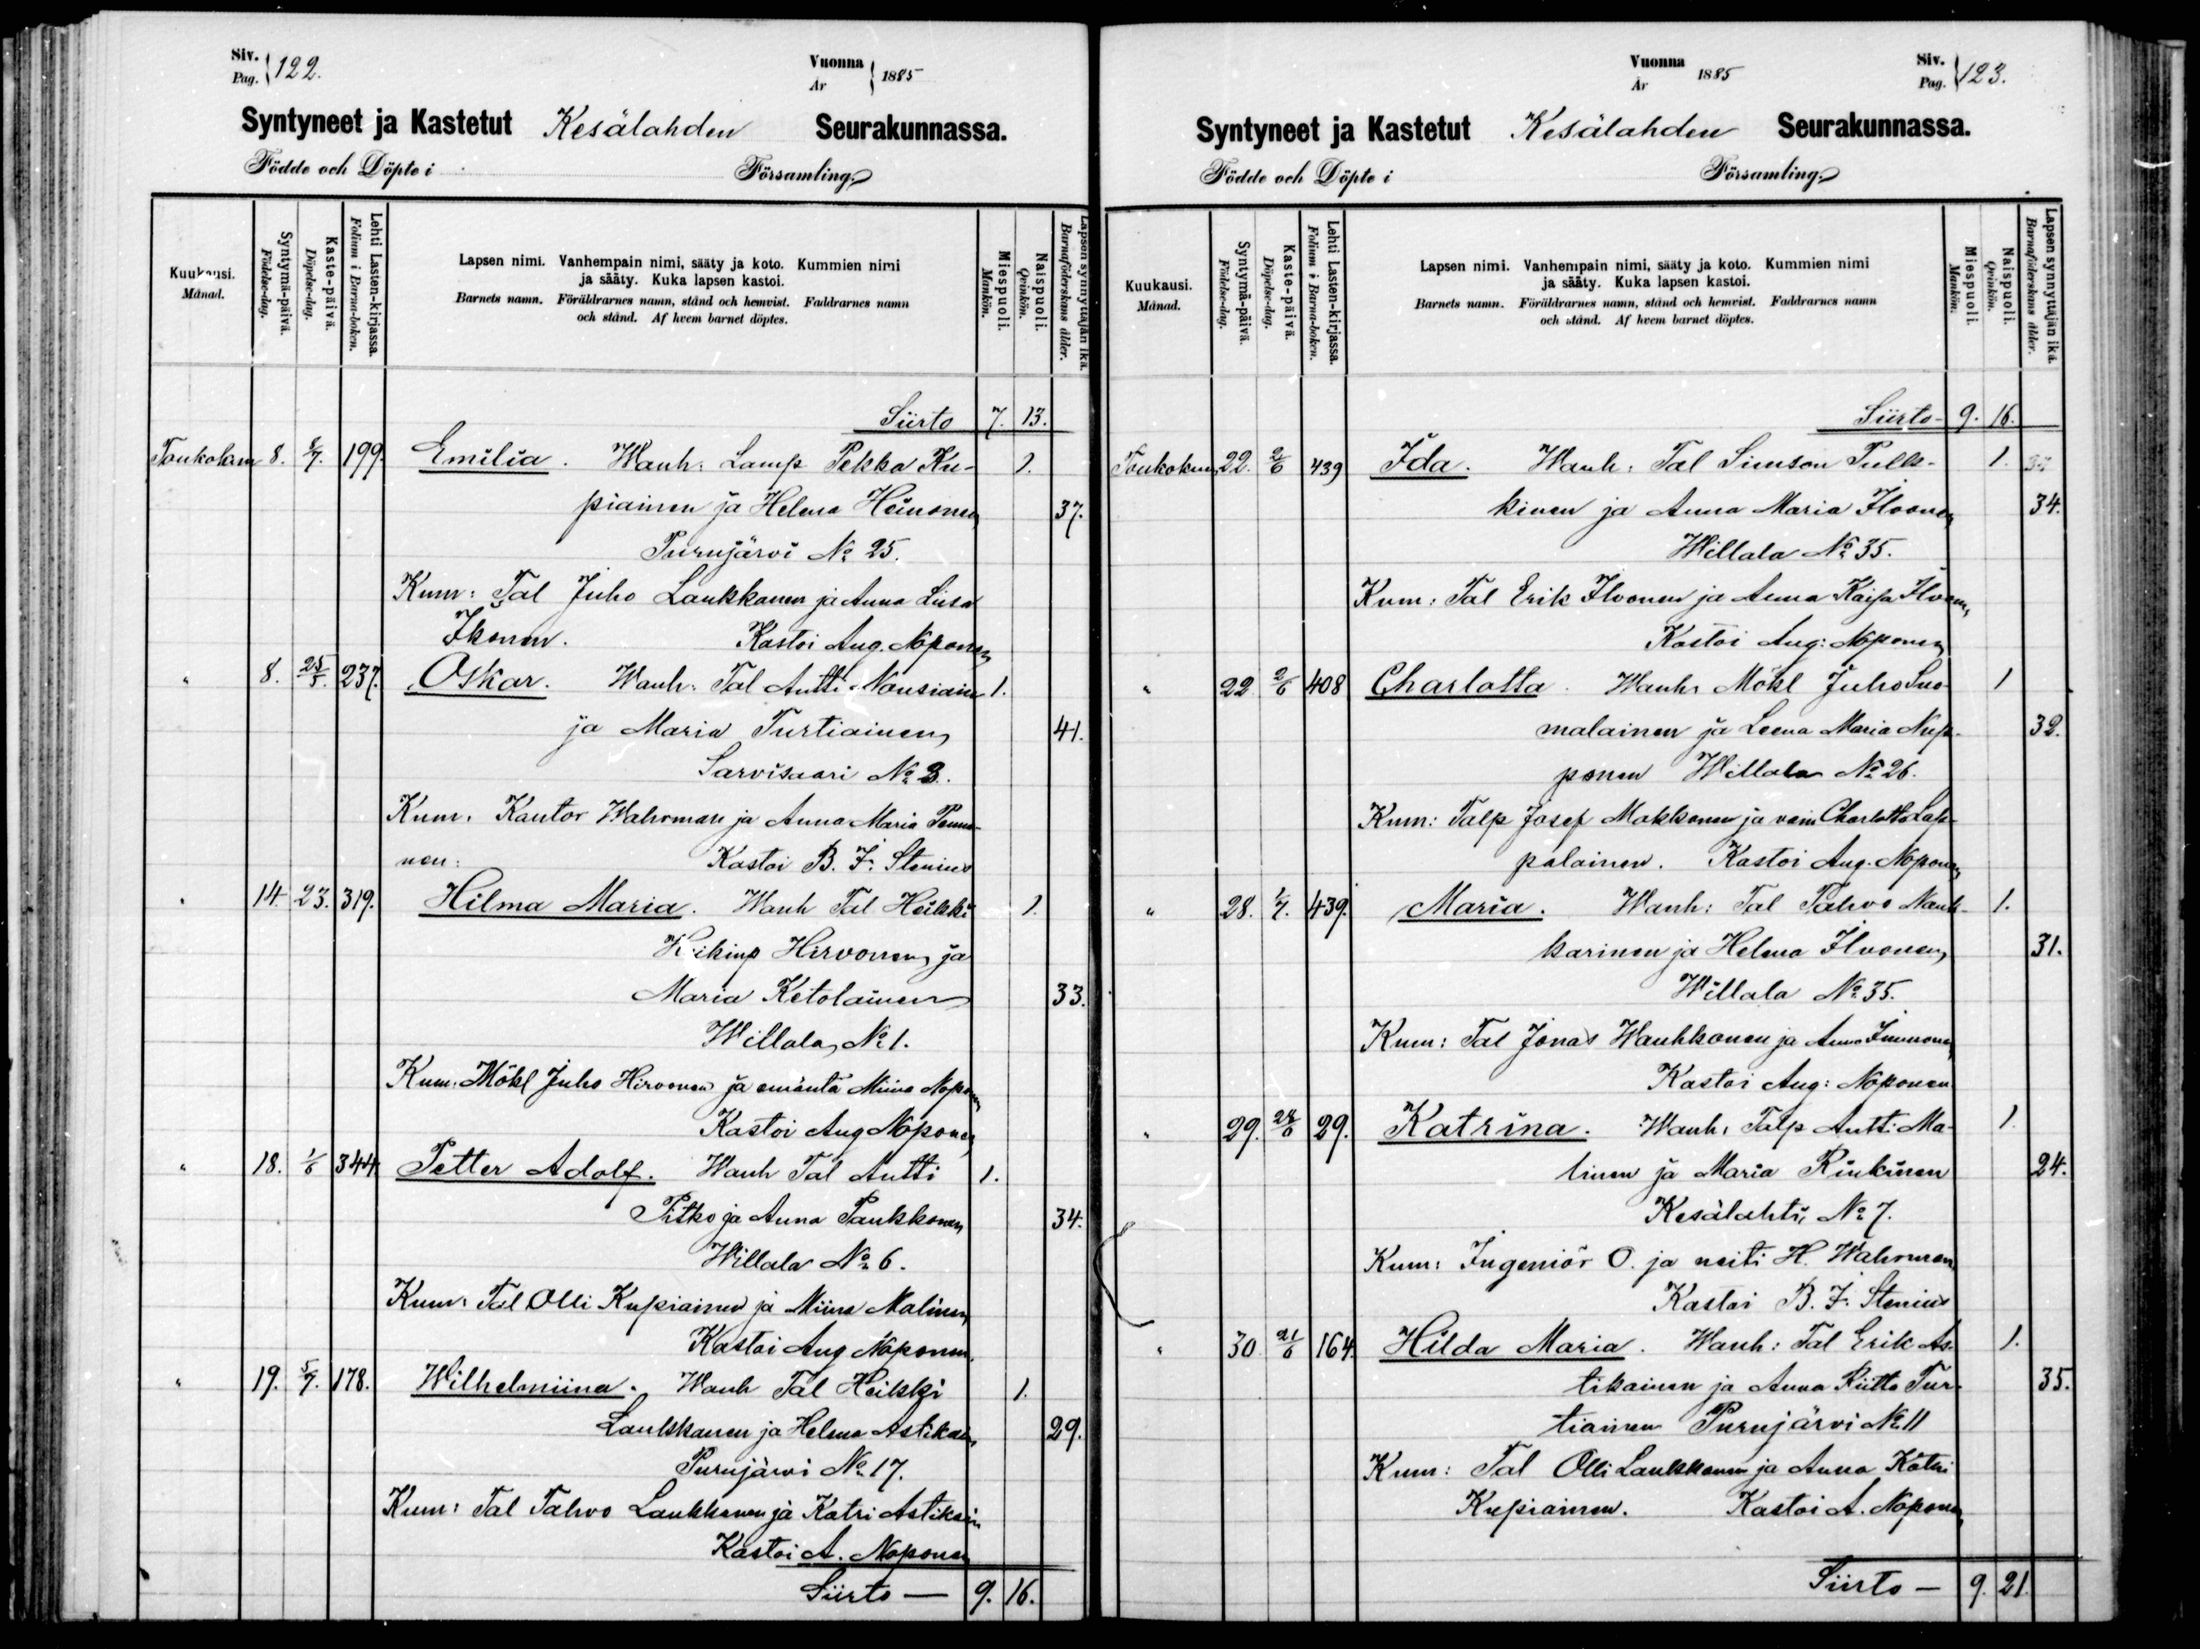 Siv.
Pag. 122.
Vuonna
År 1885
Syntyneet ja Kastetut Kesälahden Seurakunnassa.
Födde och Döpte i Församling.
Kuukausi.
Månad.
Syntymä-päivä.
Födelse-dag.
Kaste-päivä.
Döpelse-dag.
Lehti Lasten-kirjassa.
Folium i Barna-boken.
Lapsen nimi. Vanhempain nimi, sääty ja koto. Kummien nimi
ja sääty. Kuka lapsen kastoi.
Barnets namn. Föräldrarnes namn, stånd och hemvist. Faddrarnes namn
och stånd. Af hvem barnet döptes.
Miespuoli.
Mankön.
Naispuoli.
Qvinkön.
Lapsen synnyttäjän ikä.
Barnaföderskans ålder.
Siirto 7. 13.
Toukokuu 8. 8/7. 199. Emilia. Wanh: Lamp Pekka Ku- 1.
piainen ja Helena Heinonen 37.
Purujärvi No 25.
Kum: Tal Juho Laukkanen ja Anna Liisa
Ikonen. Kastoi Aug. Noponen
" 8. 25/5. 237. Oskar. Wanh: Tal Antti Nousiain 1.
ja Maria Turtiainen 41.
Sarvisaari No 3.
Kum. Kantor Wahrman ja Anna Maria Penna-
nen: Kastoi B. F. Stenius
" 14. 23. 319. Hilma Maria. Wanh Tal Heikki 1.
Heikinp Hirvonen ja
Maria Ketolainen 33.
Willala No 1.
Kum. Mökl Juho Hirvonen ja emäntä Miina Noponen
Kastoi Aug Noponen
" 18. 1/6 344 Petter Adolf. Wanh Tal Antti 1.
Pitko ja Anna Paukkonen 34.
Willala No 6.
Kum: Tal Olli Kupiainen ja Miina Malinen
Kastoi Aug Noponen.
" 19. 5/7. 178. Wilhelmiina. Wanh Tal Heikki 1.
Laukkanen ja Helena Astikain 29.
Purujärvi No 17.
Kum: Tal Tahvo Laukkanen ja Katri Astikain
Kastoi A. Noponen
Siirto — 9. 16.
Vuonna
År 1885
Siv.
Pag. 123.
Syntyneet ja Kastetut Kesälahden Seurakunnassa.
Födde och Döpte i Församling.
Kuukausi.
Månad.
Syntymä-päivä.
Födelse-dag.
Kaste-päivä.
Döpelse-dag.
Lehti Lasten-kirjassa.
Folium i Barna-boken.
Lapsen nimi. Vanhempain nimi, sääty ja koto. Kummien nimi
ja sääty. Kuka lapsen kastoi.
Barnets namn. Föräldrarnes namn, stånd och hemvist. Faddrarnes namn
och stånd. Af hvem barnet döptes.
Miespuoli.
Mankön.
Naispuoli.
Qvinkön.
Lapsen synnyttäjän ikä.
Barnaföderskans ålder.
Siirto- 9. 16.
Toukokuu 22. 2/6 439 Ida. Wanh: Tal Simson Pulk- 1.
kinen ja Anna Maria Ilvonen 34.
Willala No 35.
Kum: Tal Erik Ilvonen ja Anna Kaisa Ilvonen
Kastoi Aug: Noponen
" 22 2/6 408 Charlotta. Wanh: Mökl Juho Suo- 1
malainen ja Leena Maria Nup- 32.
ponen Willala No 26.
Kum: Talp Josef Makkonen ja vaim Charlotta Lap-
palainen. Kastoi Aug. Noponen
" 28. 1/7. 439. Maria. Wanh: Tal Pahvo Nauk- 1.
karinen ja Helena Ilvonen 31.
Willala No 35.
Kum: Tal Jonas Wanhkonen ja Anna Immonen
Kastoi Aug: Noponen
" 29. 28/6 29. Katrina. Wanh: Talp Antti Ma- 1.
linen ja Maria Rinkinen 24.
Kesälahti No 7.
Kum: Ingeniör O. ja neiti H. Wahrman
Kastoi B. F. Stenius
" 30. 21/6 164. Hilda Maria. Wanh: Tal Erik As- 1.
tikainen ja Anna Riitta Tur- 35.
tiainen Purujärvi No 11
Kum: Tal Olli Laukkanen ja Anna Katri
Kupiainen. Kastoi A. Noponen
Siirto — 9. 21.